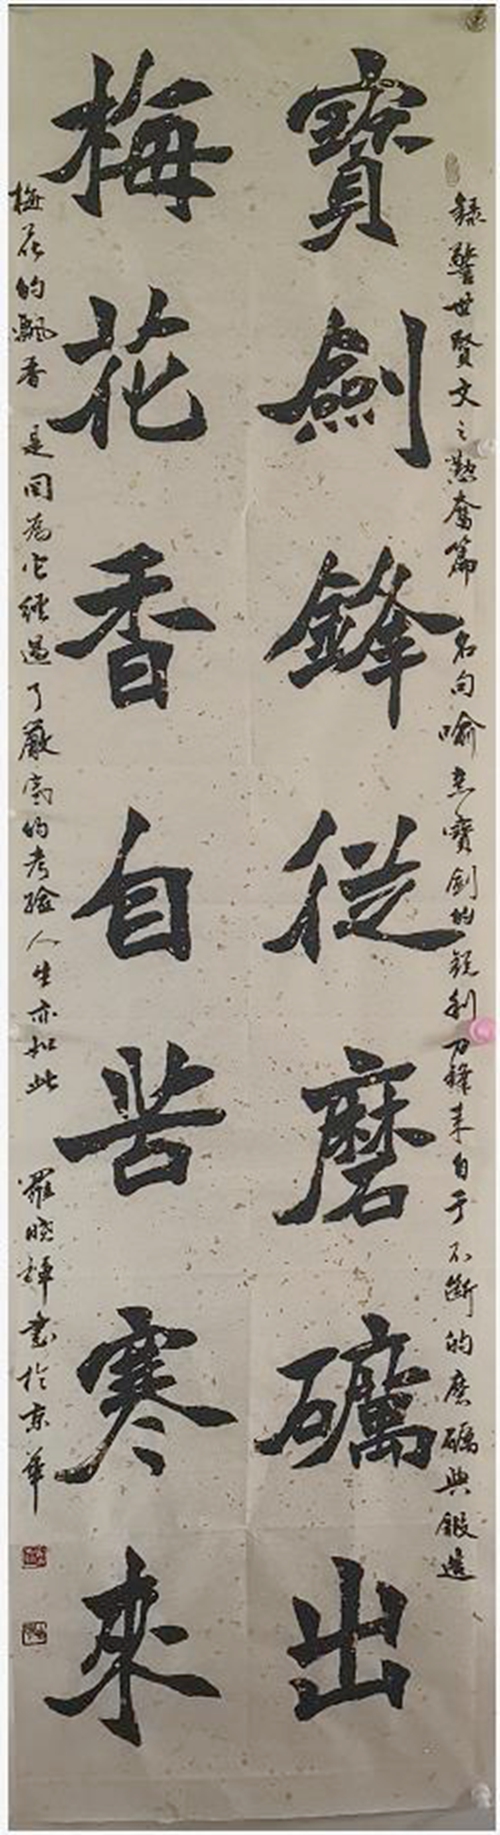 錄警世賢文之勤奮篇 名句喻意寶劍的銳利刀鋒來自于不斷的磨礪與鍛造
寶劍鋒從磨礪出
梅花香自苦寒來
梅花的飄香 是因為它經過了嚴寒的考驗人生亦如此 羅曉輝書於京華